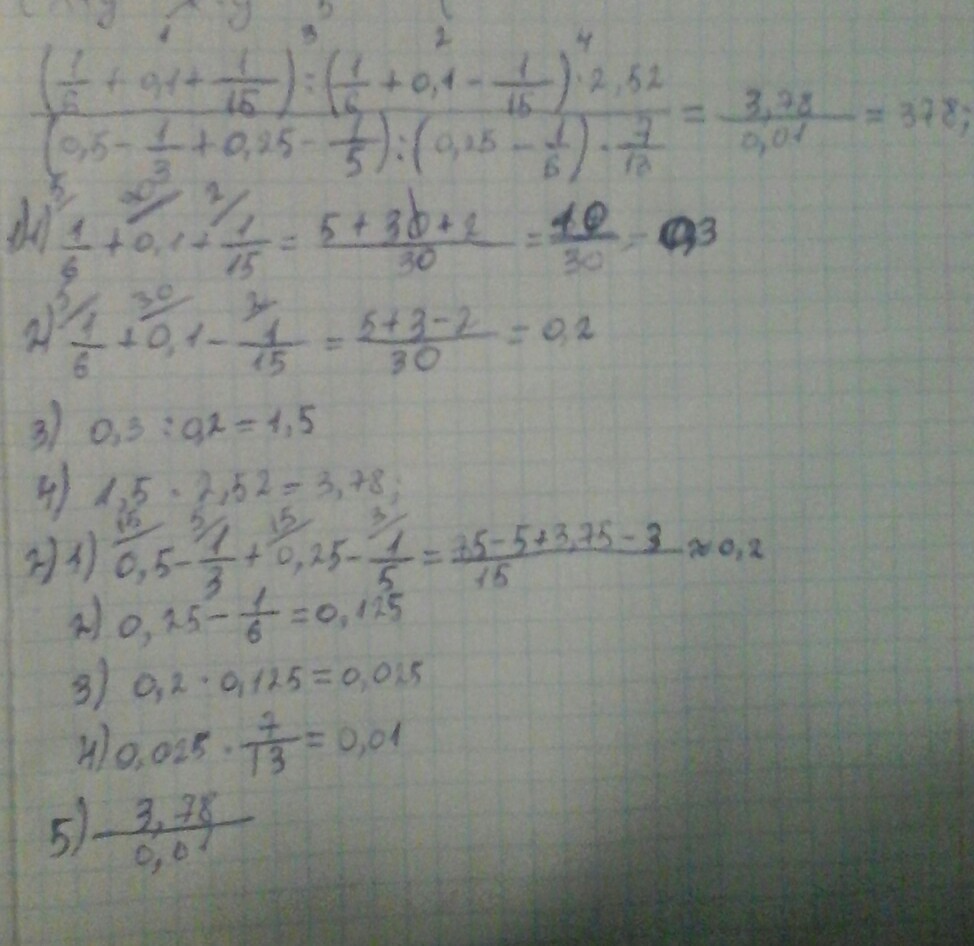 1 3 2 4
(1/6 + 0,1 + 1/15) : (1/6 + 0,1 - 1/15) · 2,52 / (0,5 - 1/3 + 0,25 - 1/5) : (0,25 - 1/6) · 7/13 = 3,78/0,01 = 378;
1) 1/6 + 0,1 + 1/15 = 5+30+2/30 = 10/30 = 0,3
2) 1/6 + 0,1 - 1/15 = 5+3-2/30 = 0,2
3) 0,3 : 0,2 = 1,5
4) 1,5 · 2,52 = 3,78;
2) 1) 0,5 - 1/3 + 0,25 - 1/5 = 7,5-5+3,75-3/15 ≈ 0,2
2) 0,25 - 1/6 = 0,125
3) 0,2 · 0,125 = 0,025
4) 0,025 · 7/13 = 0,01
5) 3,78/0,01